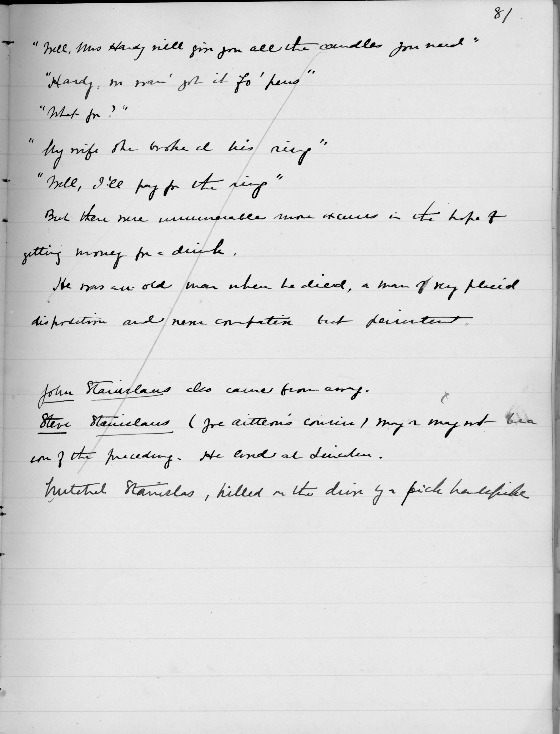 81
"Well, Mrs Hardy will give you all the candles you need"
"Hardy, me wan' got it fo' pens"
"What for?"
"My wife she broke it his ring"
"Well, I'll pay for the ring"
But there were innumerable more excuses in the hope of
getting money for a drink.
He was an old man when he died, a man of very placid
disposition and never combative but persistent.
John Stanislaus also came from away.
Steve Stanislaus (Joe Aitteon's cousin) may or may not be a
son of the preceding. He lived at Lincoln.
Mitchel Stanislas, killed on the drive by a pick handspike